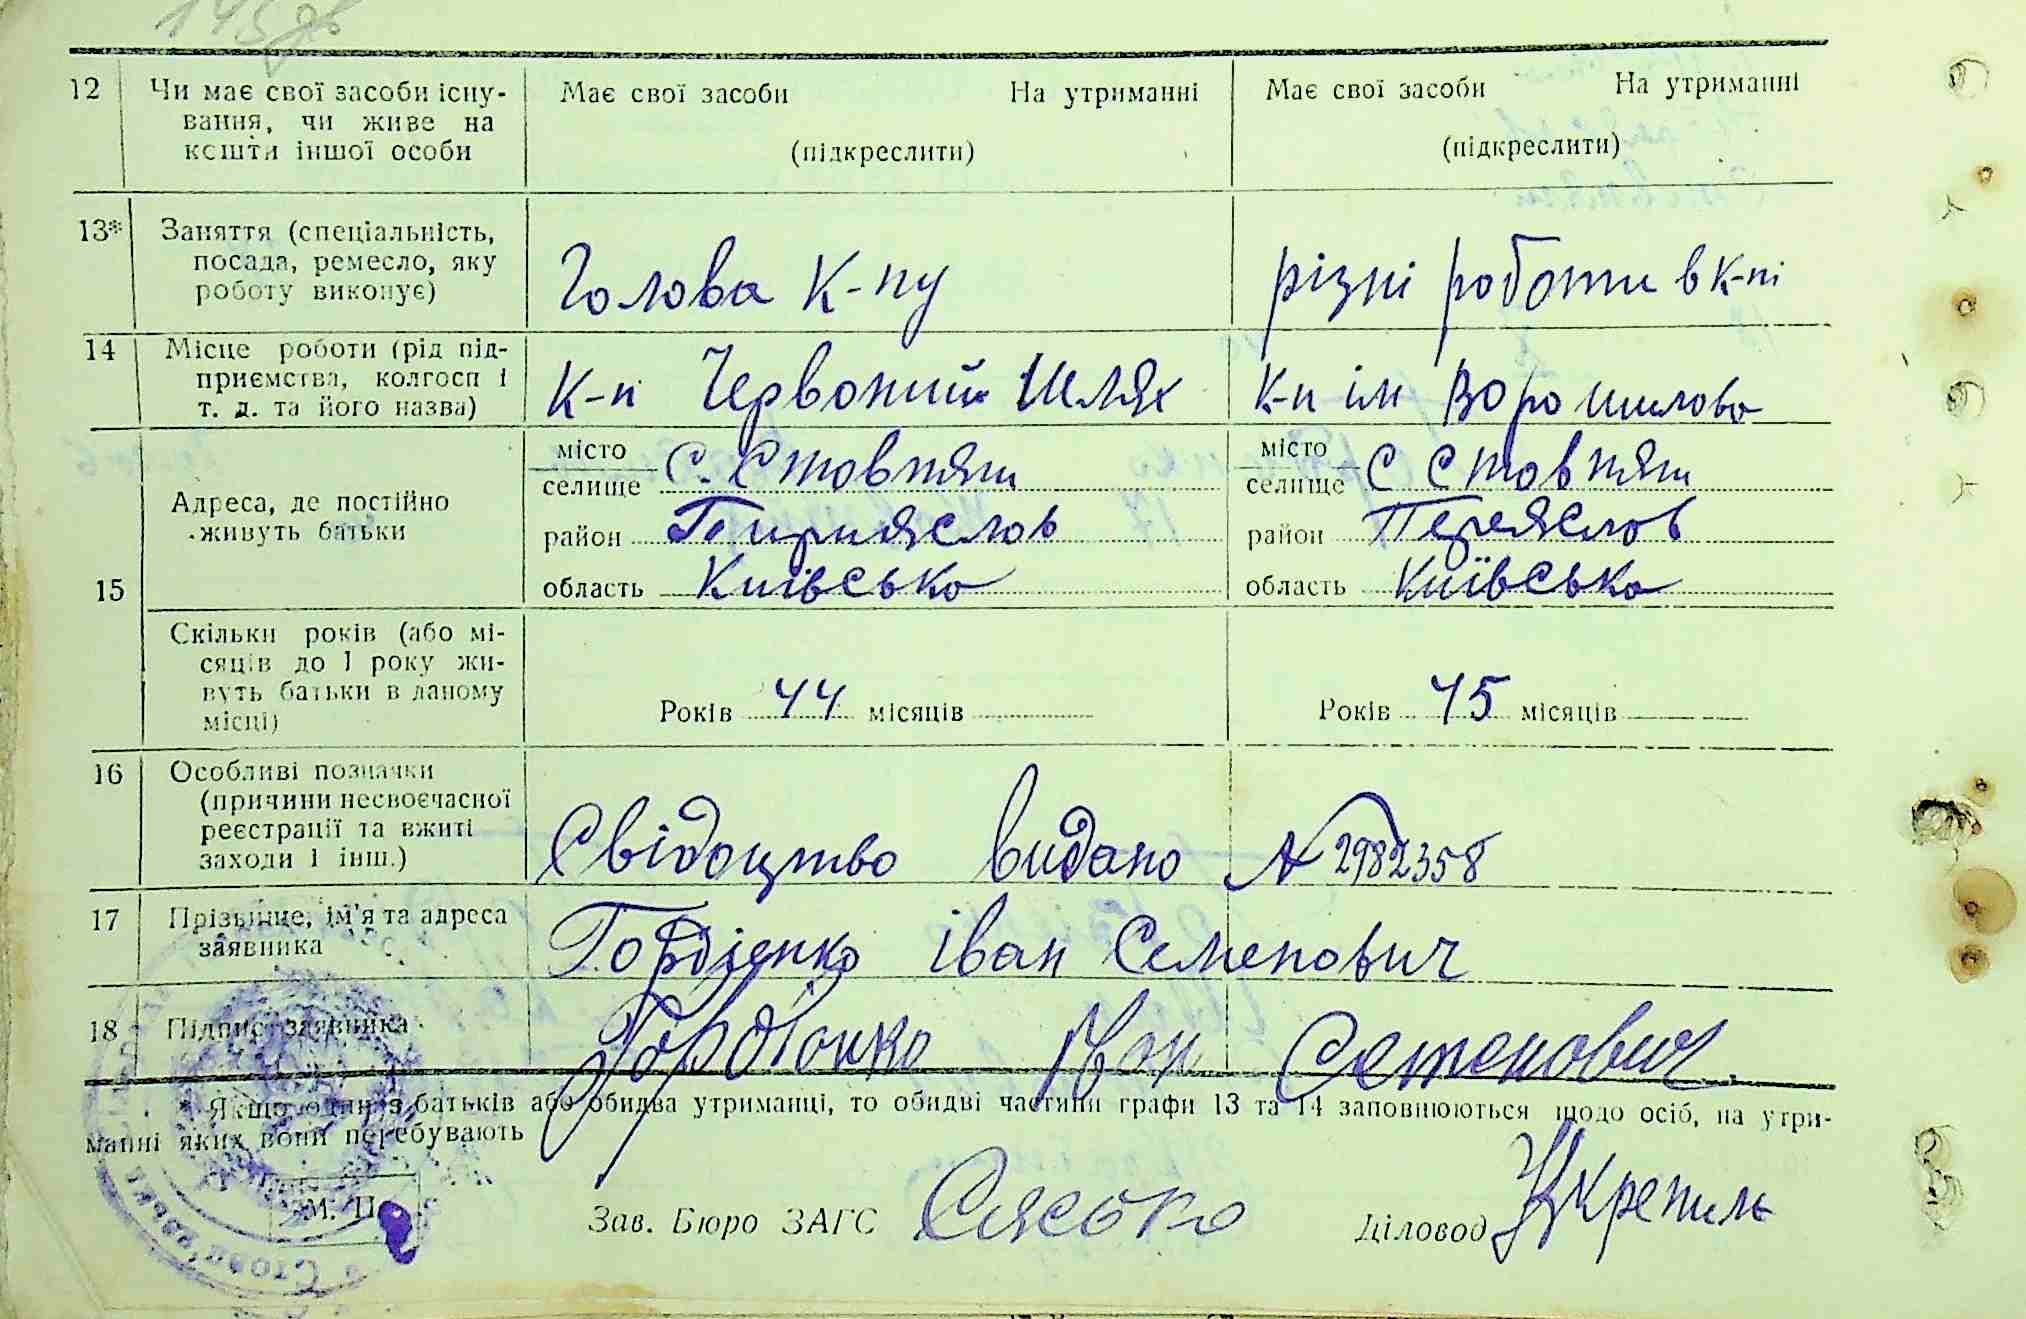 12 Чи має свої засоби існу-
вання, чи живе на
кошти іншої особи
Має свої засоби На утриманні
(підкреслити)
Має свої засоби На утриманні
(підкреслити)
13* Заняття (спеціальність,
посада, ремесло, яку
роботу виконує)
Голова к-пу
різні роботи в к-пі
14 Місце роботи (рід під-
приємства, колгосп і
т. д. та його назва)
К-п Червоний Шлях
К-п ім Ворошилова
15
Адреса, де постійно
живуть батьки
місто
селище С. Стовпяги
район
область Київська
місто
селище С Стовпяги
район Переяслов
область Київська
Скільки років (або мі-
сяців до 1 року жи-
вуть батьки в даному
місці)
Років 44 місяців
Років 45 місяців
16 Особливі позначки
(причини несвоєчасної
реєстрації та вжиті
заходи і інш.)
Свідоцтво видано № 2982358
17 Прізвище, ім'я та адреса
заявника
Гордієнко Іван Семенович
18 Підпис заявника
Гордіэнко Иван Семенович
* Якщо один з батьків або обидва утриманці, то обидві частини графи 13 та 14 заповнюються щодо осіб, на утри-
манні яких вони перебувають
М. П.
Зав. Бюро ЗАГС
Діловод